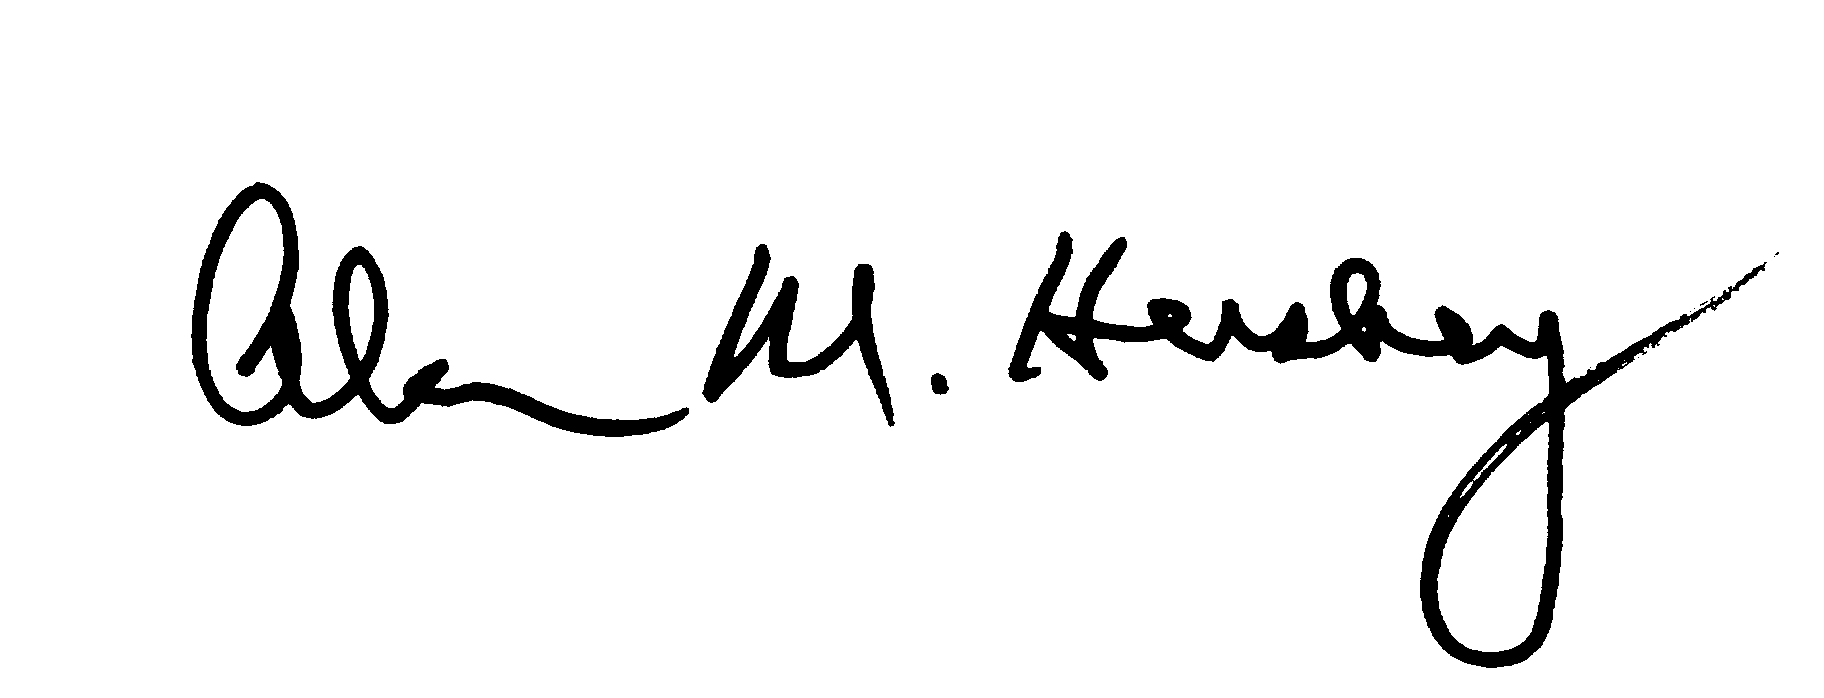 Alan M. Hershey